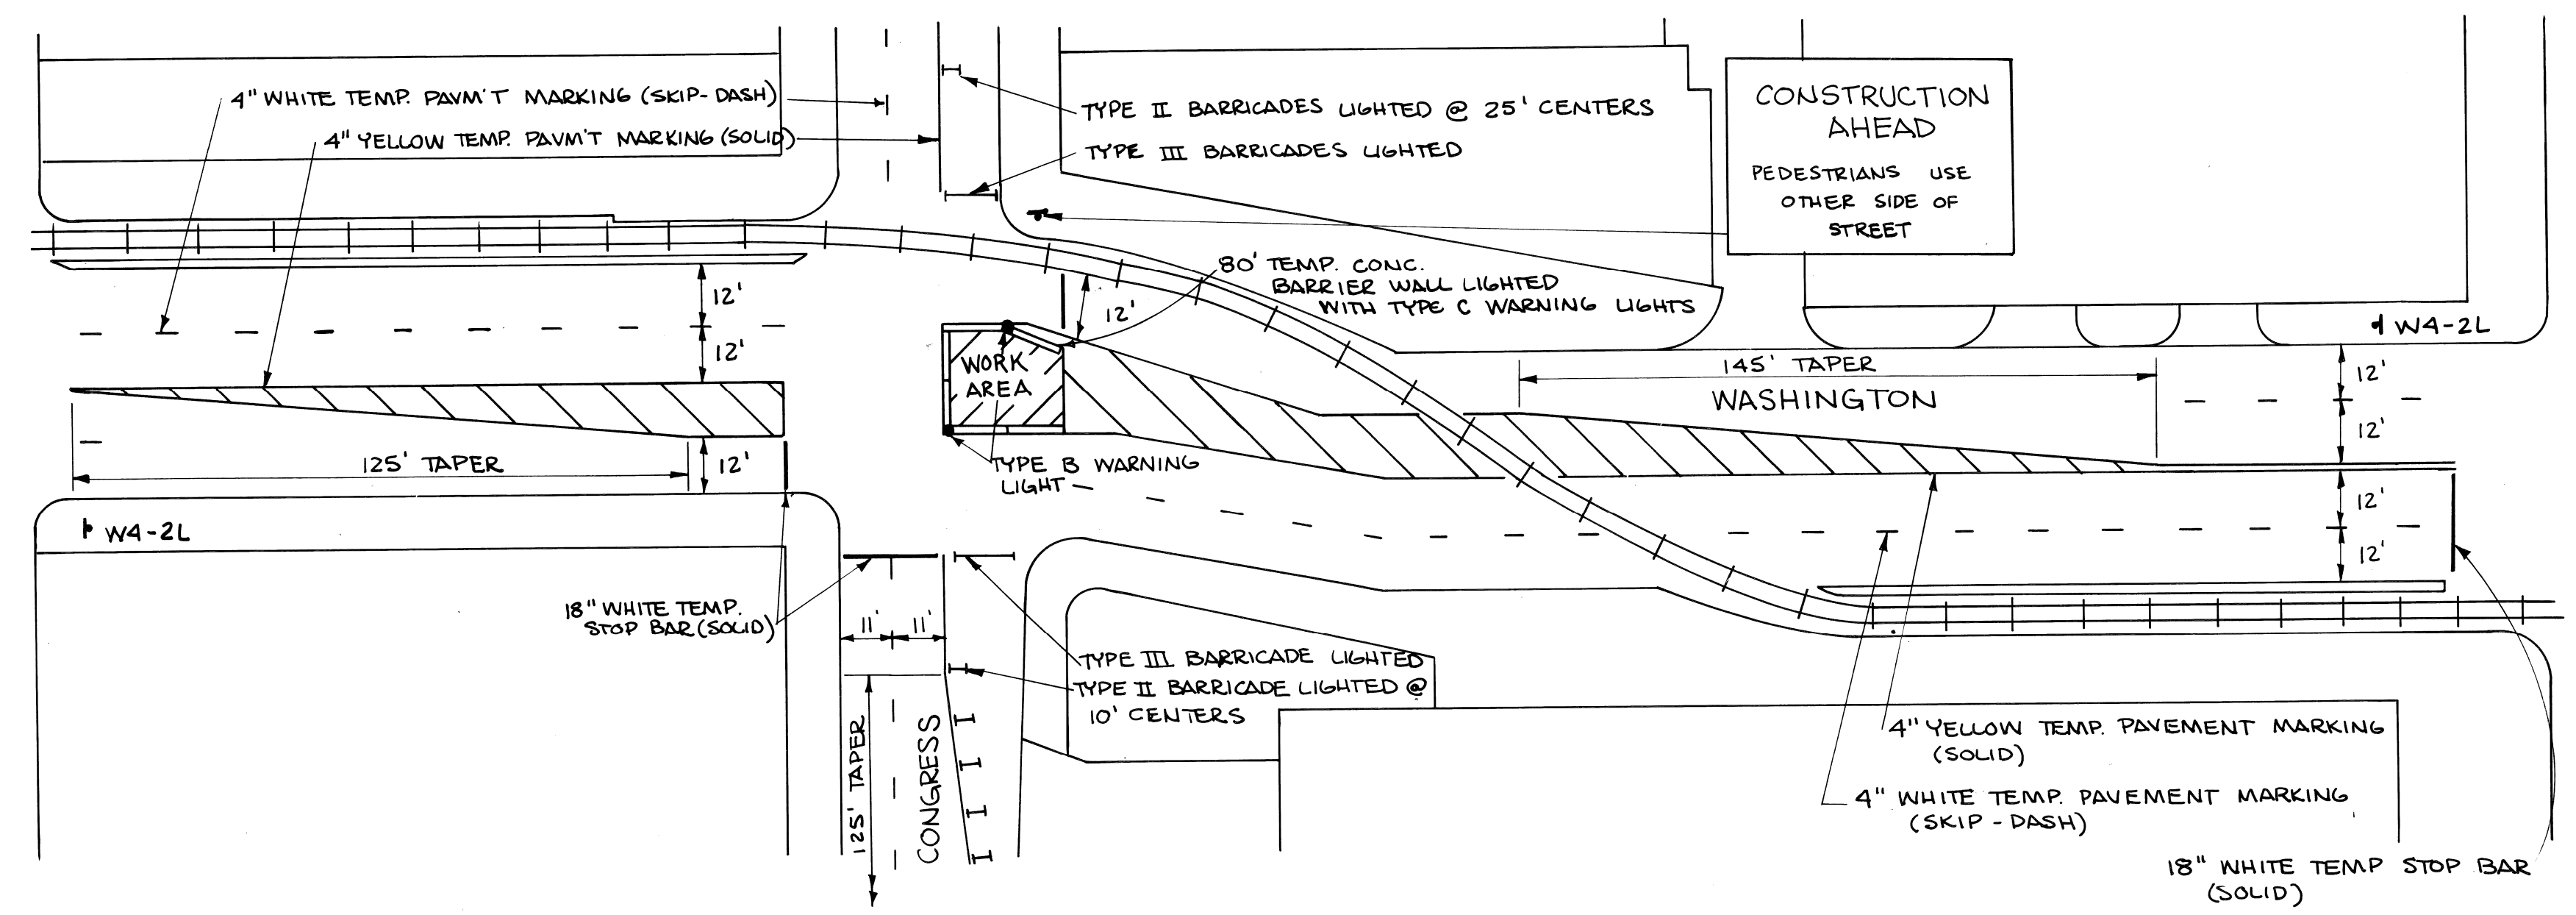 4" WHITE TEMP. PAVM'T MARKING (SKIP-DASH)
4" YELLOW TEMP. PAVM'T MARKING (SOLID)
TYPE II BARRICADES LIGHTED @ 25' CENTERS
TYPE III BARRICADES LIGHTED
CONSTRUCTION
AHEAD
PEDESTRIANS USE
OTHER SIDE OF
STREET
80' TEMP. CONC.
BARRIER WALL LIGHTED
WITH TYPE C WARNING LIGHTS
12'
12'
12'
W4-2L
145' TAPER
WASHINGTON
12'
12'
WORK
AREA
125' TAPER
12'
TYPE B WARNING
LIGHT
12'
12'
W4-2L
18" WHITE TEMP.
STOP BAR (SOLID)
11'
11'
TYPE III BARRICADE LIGHTED
TYPE II BARRICADE LIGHTED @
10' CENTERS
125' TAPER
CONGRESS
4" YELLOW TEMP. PAVEMENT MARKING
(SOLID)
4" WHITE TEMP. PAVEMENT MARKING
(SKIP-DASH)
18" WHITE TEMP STOP BAR
(SOLID)